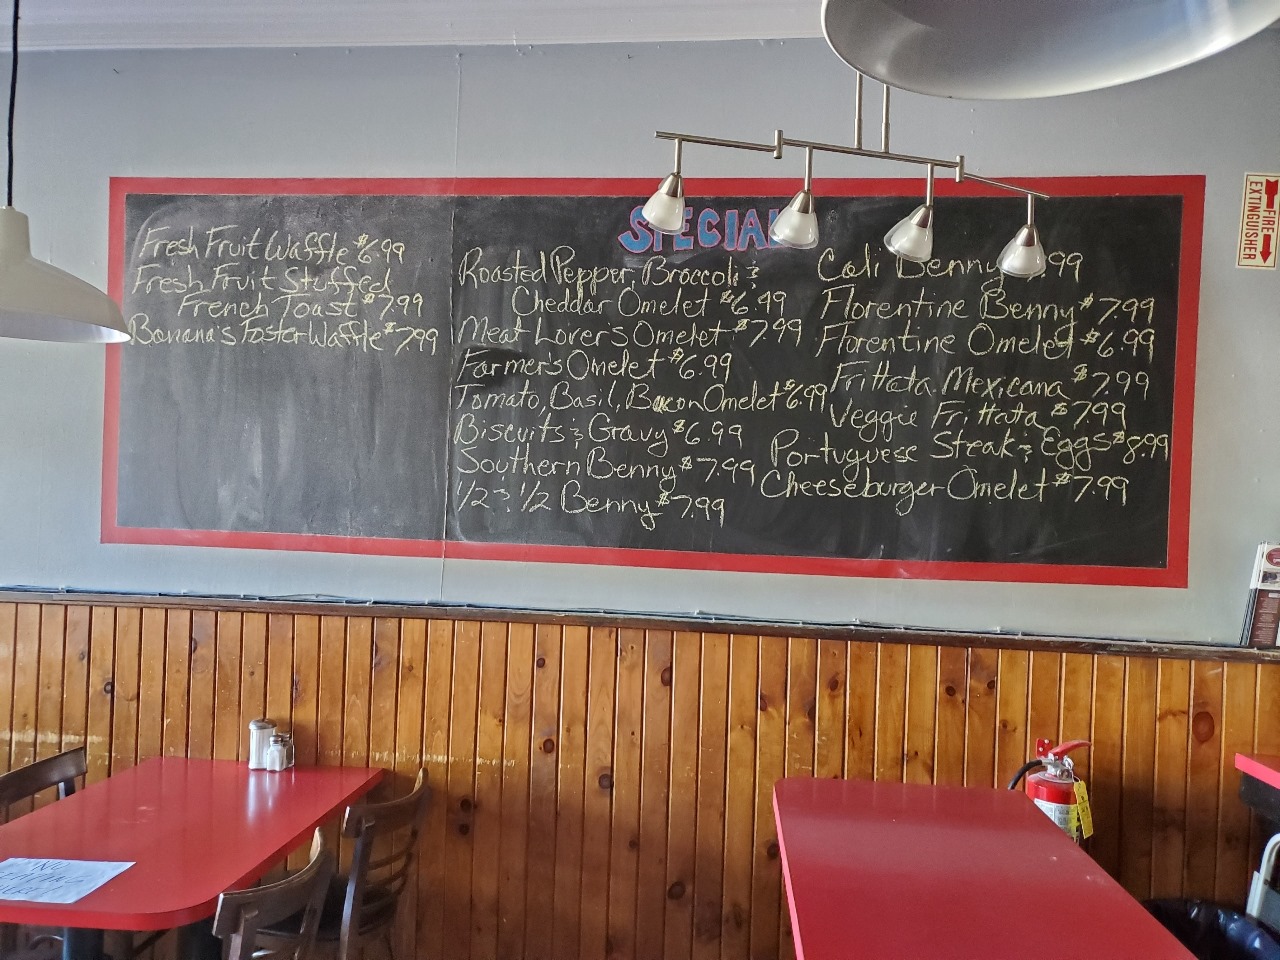 Fresh Fruit Waffle $6.99
Fresh Fruit Stuffed
French Toast $7.99
Banana's Foster Waffle $7.99
SPECIAL
Roasted Pepper, Broccoli &
Cheddar Omelet $6.99
Meat Lover's Omelet $7.99
Farmer's Omelet $6.99
Tomato, Basil, Bacon Omelet $6.99
Biscuits & Gravy $6.99
Southern Benny $7.99
1/2 & 1/2 Benny $7.99
Cali Benny .99
Florentine Benny $7.99
Florentine Omelet $6.99
Frittata Mexicana $7.99
Veggie Frittata $7.99
Portuguese Steak & Eggs $8.99
Cheeseburger Omelet $7.99
FIRE
EXTINGUISHER
NO